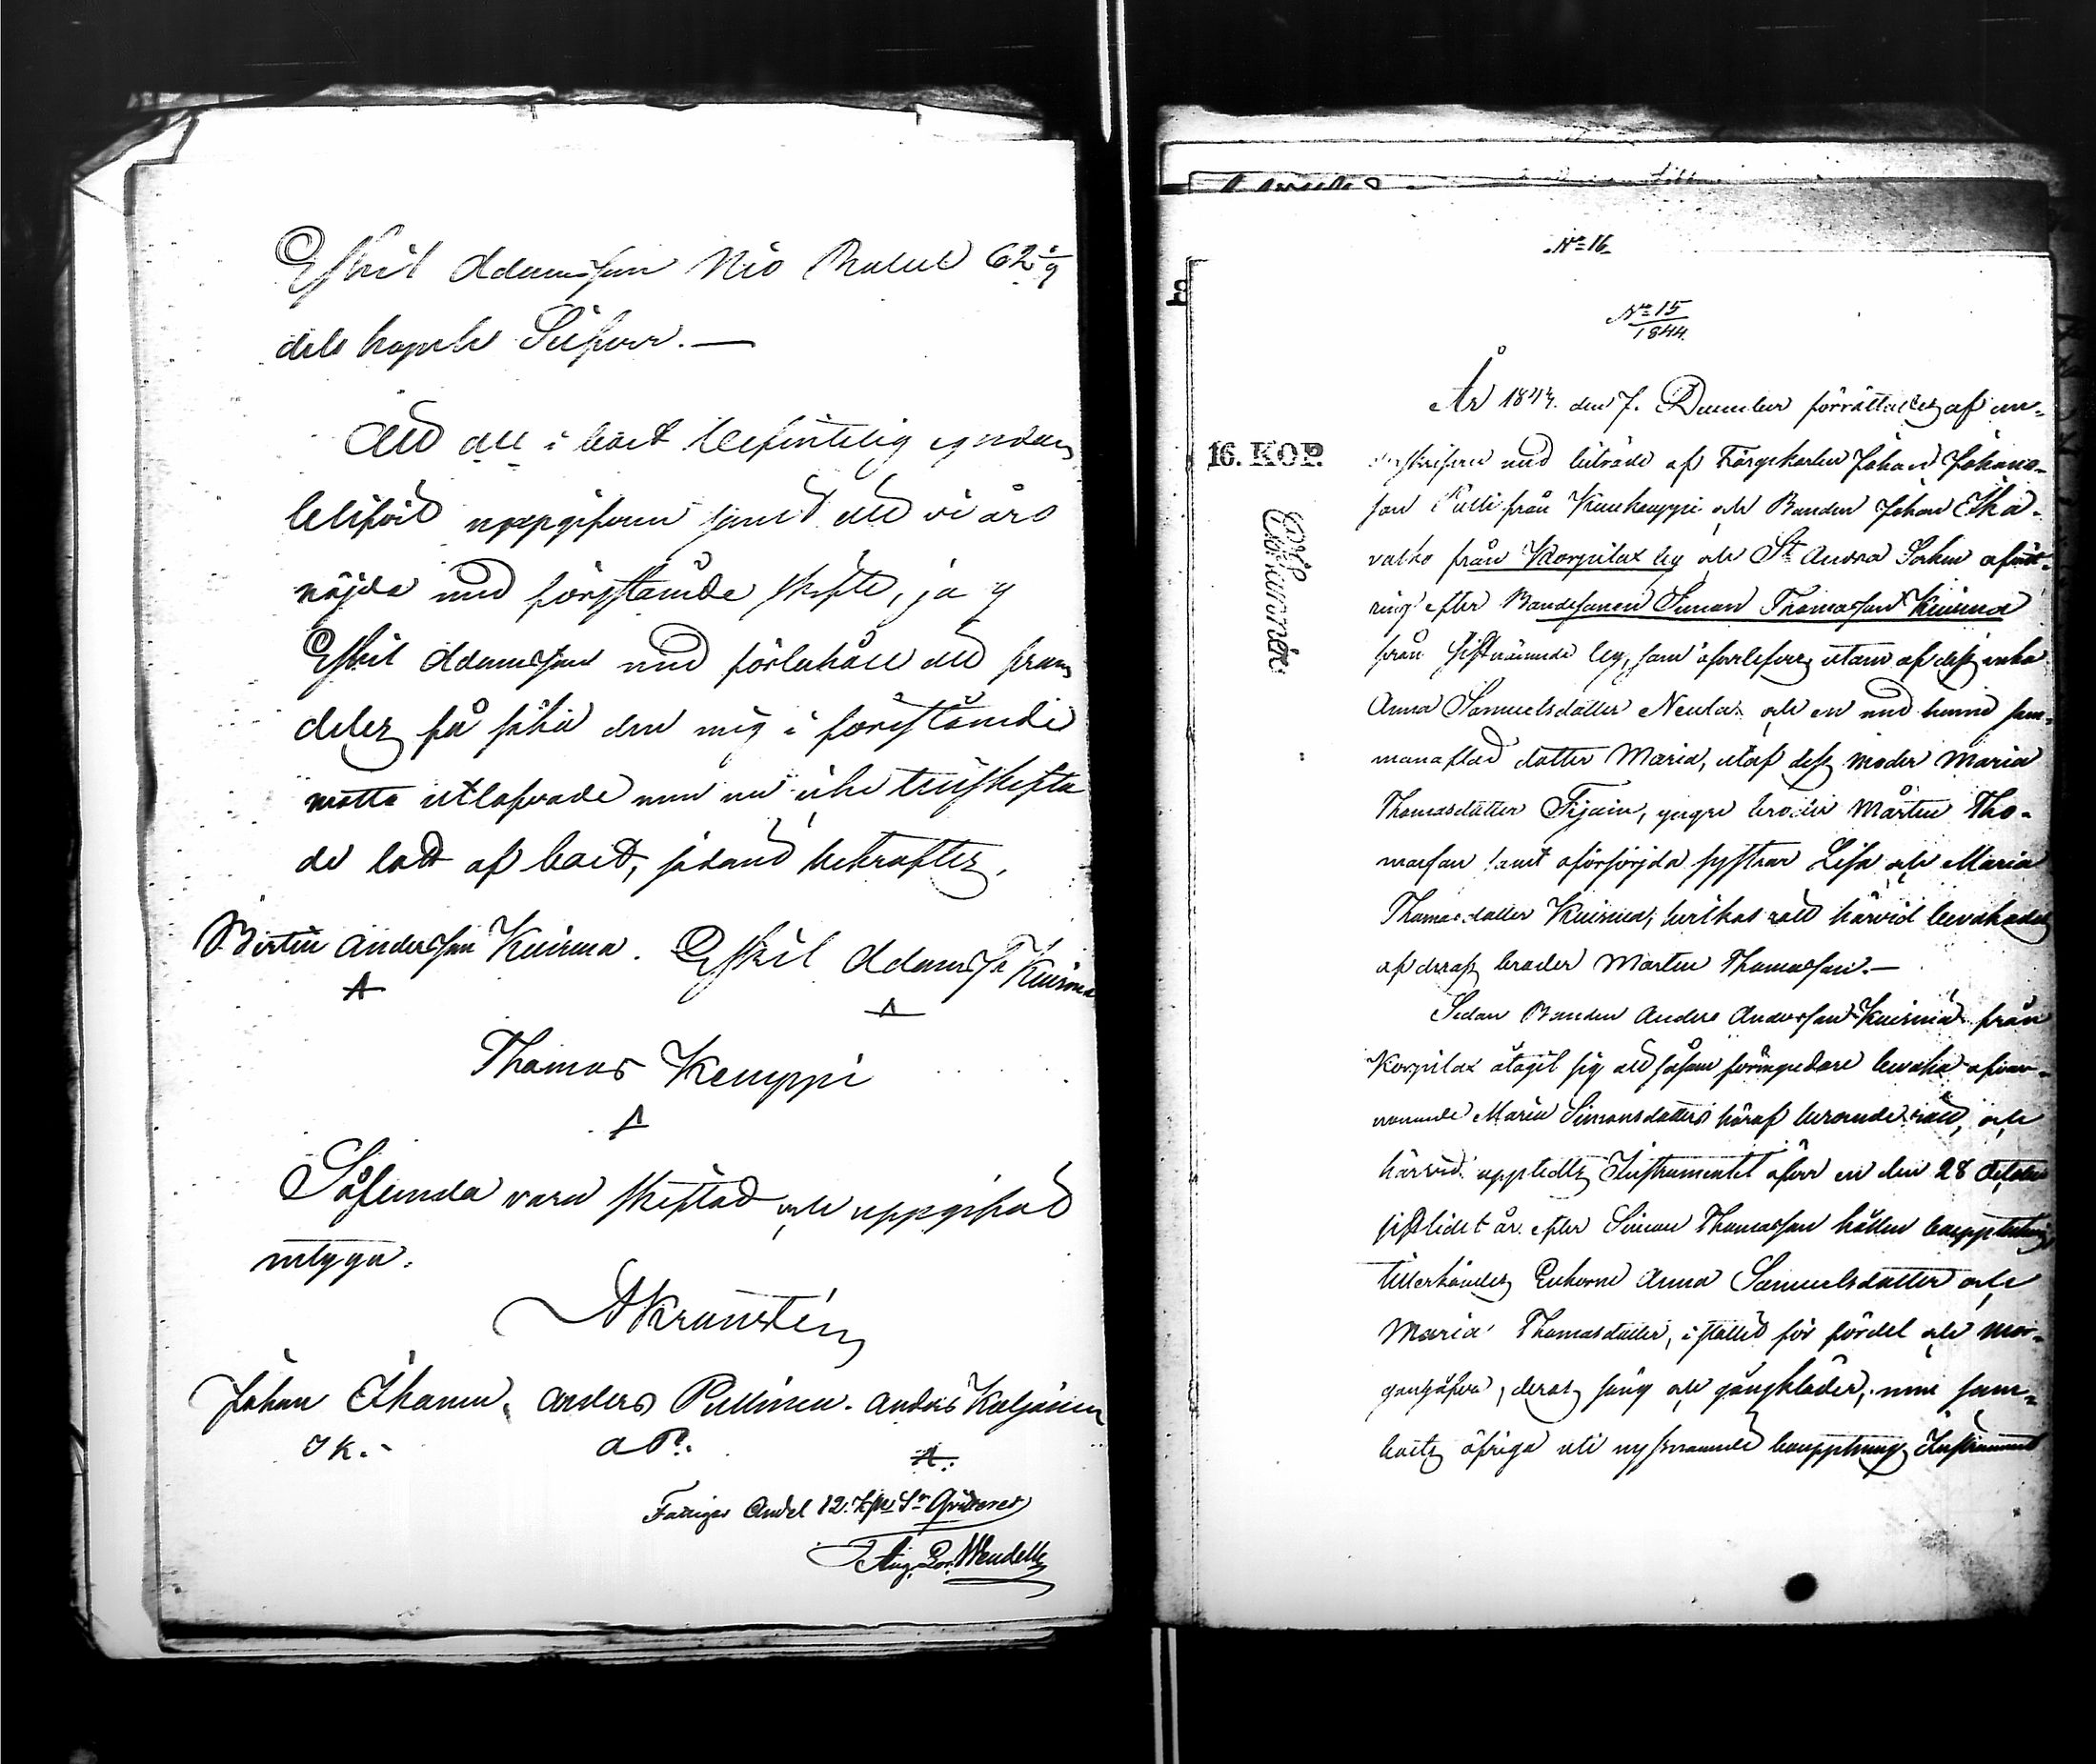 Eskil Adamsson Nio Rubel 62 2/9
dels kopek Silfver.—
Att all i boet befintelig egendom
blifvit uppgifven samt att vi äro
nöjda med förestående skifte, jag
Eskil Adamsson med förbehåll att fram
deles få söka den mig i förestående
måtto utlofvade men nu icke tillskifta
de lott af boet, sådant bekräftes.
Bertil Andersson Kuisma. Eskil Adamsso Kuisma
Thomas Kemppi
Sålunda vara skiftadt och uppgifvet
intyga.
AKrunstén
Johan Ihanen. Anders Pullinen. Anders Kaljunen
I K.- A P.
Fattiges Andel 12. kpk Sr qvitteras
Aug. Wendell
No 16
No 15
1844.
År 1843. den 7. December förrättades af un-
dertecknad med biträde af Färgekarlen Johan Johans-
son från Kuukauppi och Bonden Johan Iha-
valko från Korpilax by och St Andrea Socken afvitt-
ring efter Bondesonen Simon Thomasson Kuisma
från sistnämnde by, som öfverlefves utom af dess enka
Anna Samuelsdotter Neula och en med henne sam-
manaflad dotter Maria, utaf dess moder Maria
Thomasdotter Tijain, yngre broder Mårten Tho-
masson samt oförsörjda systrar Lisa och Maria
Thomasdotter Kuisma, hvilkas rätt härvid bevakades
af deras broder Mårten Thomasson.—
16. KOP.
Sedan Bonden Anders Andersson Kuisma från
Korpilax åtagit sig att såsom förmyndare bevaka ofvan-
nämnde Maria Simonsdotters häraf beroende rätt, och
härvid upplästes Instrumentet öfver en den 28 October
sistlidet år efter Simon Thomasson hållen bouppteckning
tillerkändes Enkorne Anna Samuelsdotter och
Maria Thomasdotter, i stället för fördel och mor-
gongåfva, deras säng och gångkläder, men sam-
boets öfriga uti nyssnämnde bouppteckning Instrument